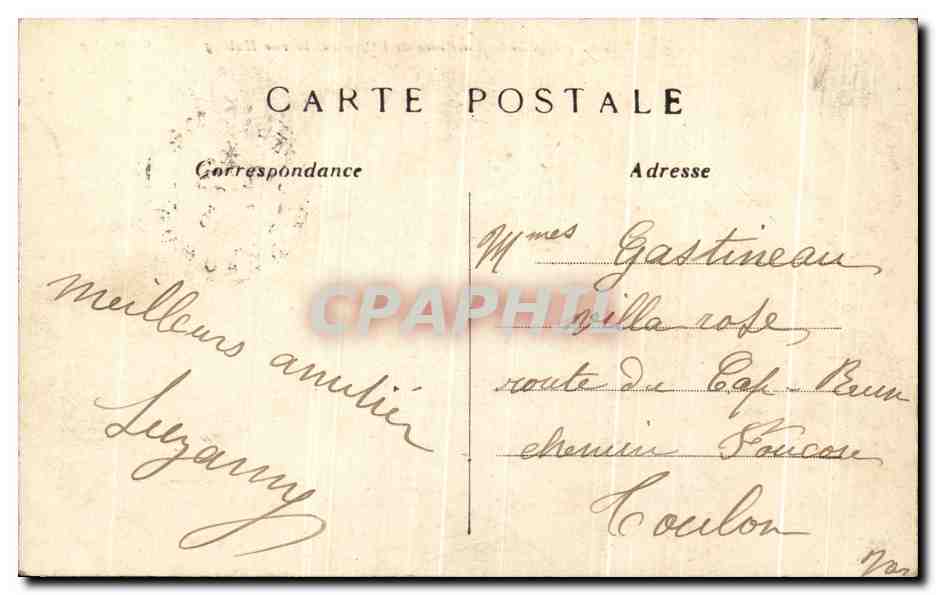 CARTE POSTALE
Correspondance
Adresse
Mmes Gastineau
villa rose
route du Cap-Brun
chemin
Toulon
Var
meilleurs amitiés
Suzanne
CPAPHIL